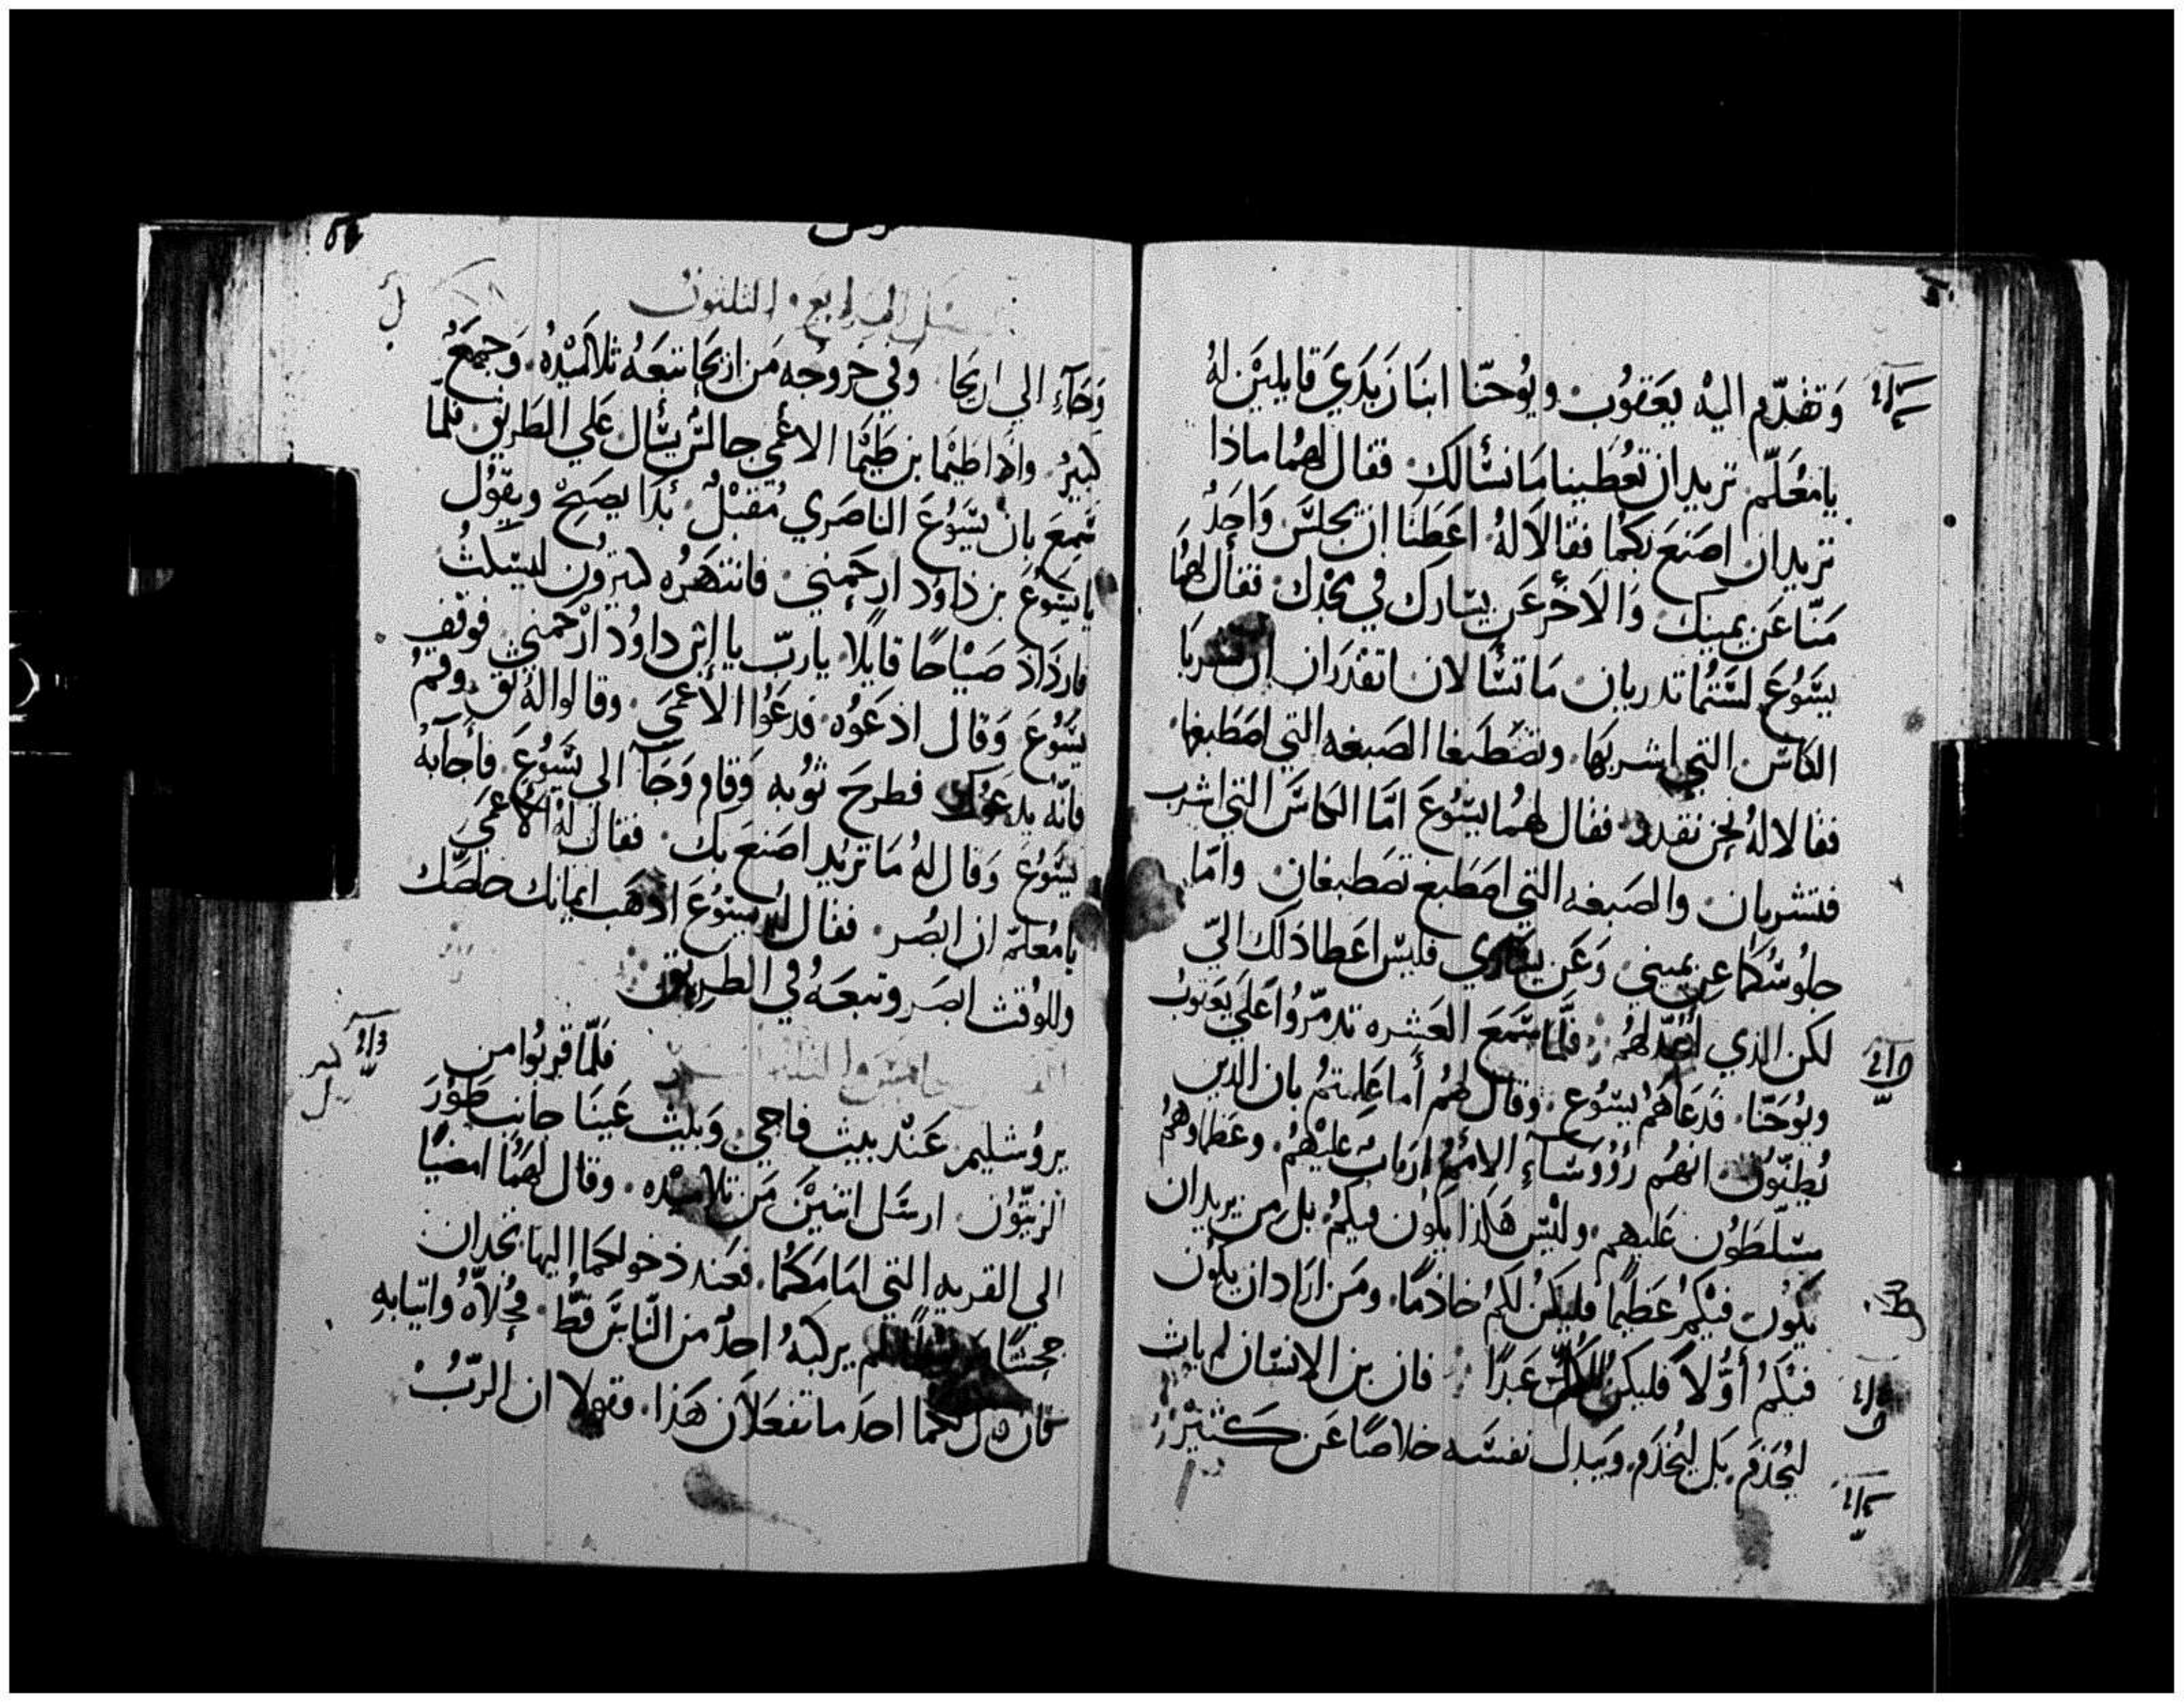 وَتقدّم اليهْ يَعَقوُبَ ويُوحنّا ابنَا زَبَدَي قايلَيْن لهُ
يا مُعَلّم نريد ان تعُطينا مَا نسْألك فقال لهُما ماذا
تريدان اصنَع بكمُا فقالا لهُ اعَطنَا ان يجلسَ وَاحِدٌ
منّا عَن يمينك وَالآخر عَن يسَارك في مجْدك فقال لهُما
يسَوُعَ لسَتمُا تدريان مَا تسْألان اتقدَران ان تشربَا
الكاسَ التي اشربهَا وتصَطبغا الصَبغه التي اصَطبغها
فقالا لهُ نحن نقدر فقال لهمُا يسَوُعَ امّا الكاسَ التي اشرب
فتشربان والصَبغه التي اصَطبغ تصَطبغان وامّا
جلوُسَكمُا عن يميني وَعَن يسَاري فليسَ اعَطا ذلك اليّ
لكن الذي اعُدّ لهمُ فلمّا سَمعَ العَشره تدمّروُا عَلي يَعَقوبُ
ويوُحَنّا فدَعَاهمُ يسَوُعَ وقال لهمُ أما عَلمتمُ بان الذين
يُظنّوُن انهمُ رُؤوسَاءِ الامَمُ اربابٌ عَليْهمُ وعَظماوُهمُ
مسَلّطوُن عَليهم وليْسَ هَكذا يكوُن فيكمُ بل من يريد ان
يَكوُن فيْكمُ عَظيمًا فليَكنُ لكمُ خادمًا ومَن ارَاد ان يكوُن
فيْكمُ أوّلاً فليكن للكُلّ عَبدًا فان بن الانسَان لم يات
ليُخدَم بَل ليَخدَم ويَبدل نفسَه خلاصًا عَن كثيْر
الرابع والثلثون
وَجَآءِ الي اريحَا وَفي خرَوجه مَن اريحَا تبعَهُ تلامَيْدهُ وَجمَعٌ
كبيرٌ واذا طيْما بن طيْما الاعْمي جالسٌ يسْأل عَلي الطَريق فلمّا
سَمعَ بان يسَوُعَ الناصَري مُقبْلٌ بدَا يصَيحْ ويقوُل
يا يسَوُعَ بن داوُد ارحَمني فانتهَرُه كثيروُن ليسَكتُ
فازدَادَ صَيْاحًا قايلًا يا ربّ يا ابن داوُد ارْحَمني فوَقف
يسَوُعَ وَقال ادعَوُه فدعَوُا الأعمَي وقالوا لهُ ثق وقمُ
فانّه يدعَوُك فطرحَ ثوُبه وَقام وَجَآ الي يسَوُعَ فأجَابهُ
يسَوُعَ وَقال لهُ مَا تريْد اصَنعَ بك فقال لهُ الأعْمَي
يا مُعلمّ ان ابصُر فقال لهُ يسَوُعَ اذهَب ايمانك خلصَّك
وللوُقتُ ابصَر وتبعَهُ في الطريق
فلمّا قربوُا من
يروُشليم عَنْد بيت فاجي وَبيْت عَينَا جانب طوُرَ
الزيتوُن ارسَل اثنيْن مَن تلاميْده وقال لهمَا امضيا
الي القريه التي امَامكمُا فعَند دخولكما اليها تجدان
جحشًا مربوطا لم يركبهُ احدٌ من الناسَ قطُ فحُلاّهُ واتيا به
فان قال لكما احَد ما تفعَلان هَذا فقولا ان الربُ